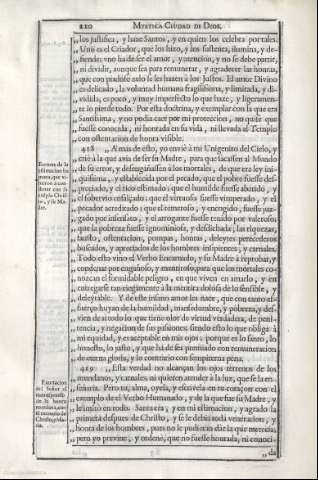 220 MYSTICA CIUDAD DE DIOS.
„ los justifica, y hace Santos, y en quien los celebra por tales.
„ Uno es el Criador, que los hizo, y los sustenta, ilumina, y de-
„ fiende: uno ha de ser el amor, y atencion, y no se debe partir,
„ ni dividir, aunque sea para remunerar, y agradecer las honras,
„ que con piadoso zelo se les hacen à los Justos. El amor Divino
„ es delicado, la voluntad humana fragilissima, y limitada, y di-
„ vidida, es poco, y muy imperfecto lo que hace, y ligeramen-
„ te lo pierde todo. Por esta doctrina, y exemplar con la que era
„ Santissima, y no podia caer por mi proteccion, no quise que
„ fuesse conocida, ni honrada en su vida, ni llevada al Templo
„ con ostentacion de honra visible.
418 „ A mas de esto, yo envié à mi Unigenito del Cielo, y
„ crié à la que avia de ser su Madre, para que sacassen al Mundo
„ de su error, y desengañassen à los mortales, de que era ley ini-
„ quissima, y establecida por el pecado, que el pobre fuesse des-
„ preciado, y el rico estimado; que el humilde fuesse abatido, y
„ el sobervio ensalzado; que el virtuoso fuesse vituperado, y el
„ pecador acreditado; que el temeroso, y encogido, fuesse juz-
„ gado por insensato, y el arrogante fuesse tenido por valeroso;
„ que la pobreza fuesse ignominiosa, y desdichada; las riquezas,
„ fausto, ostentacion, pompas, honras, deleytes perecederos
„ buscados, y apreciados de los hombres insipientes, y carnales.
„ Todo esto vino el Verbo Encarnado, y su Madre à reprobar, y
„ condenar por engañoso, y mentiroso, para que los mortales co-
„ nozcan el formidable peligro, en que viven en amarlo, y en
„ entregarse tan ciegamente à la mentira dolosa de lo sensible, y
„ deleytable. Y de este insano amor les nace, que con tanto es-
„ fuerzo huyan de la humildad, mansedumbre, y pobreza, y des-
„ vien de sì todo lo que tiene olor de virtud verdadera, de peni-
„ tencia, y negacion de sus passiones: siendo esto lo que obliga à
„ mi equidad, y es aceptable en mis ojos; porque es lo santo, lo
„ honesto, lo justo, y que ha de ser premiado con remuneracion
„ de eterna gloria, y lo contrario con sempiterna pena.
419 „ Esta verdad no alcanzan los ojos terrenos de los
„ mundanos, y carnales, ni quieren atender à la luz, que se la en-
„ señaria. Pero tu, alma, oyela, y escrivela en tu corazon con el
„ exemplo de el Verbo Humanado, y de la que fue su Madre, y
„ le imitó en todo. Santa era, y en mi estimacion, y agrado la
„ primera despues de Christo, y se le debia toda veneracion, y
„ honra de los hombres, pues no le pudieran dàr la que merecia;
„ pero yo previne, y ordené, que no fuesse honrada, ni conoci-
„ da